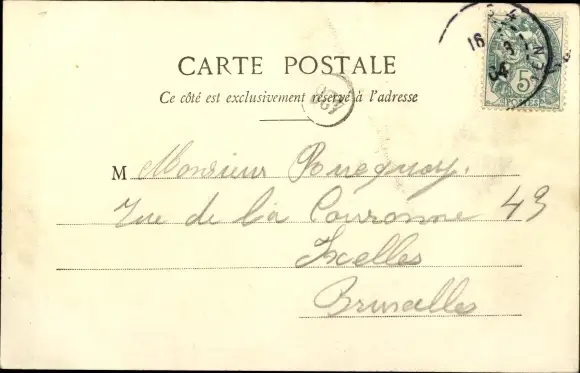 16
04
5
POSTES
CARTE POSTALE
Ce côté est exclusivement réservé à l'adresse
M Monsieur
Rue de la Couronne 49
Ixelles
Bruxelles